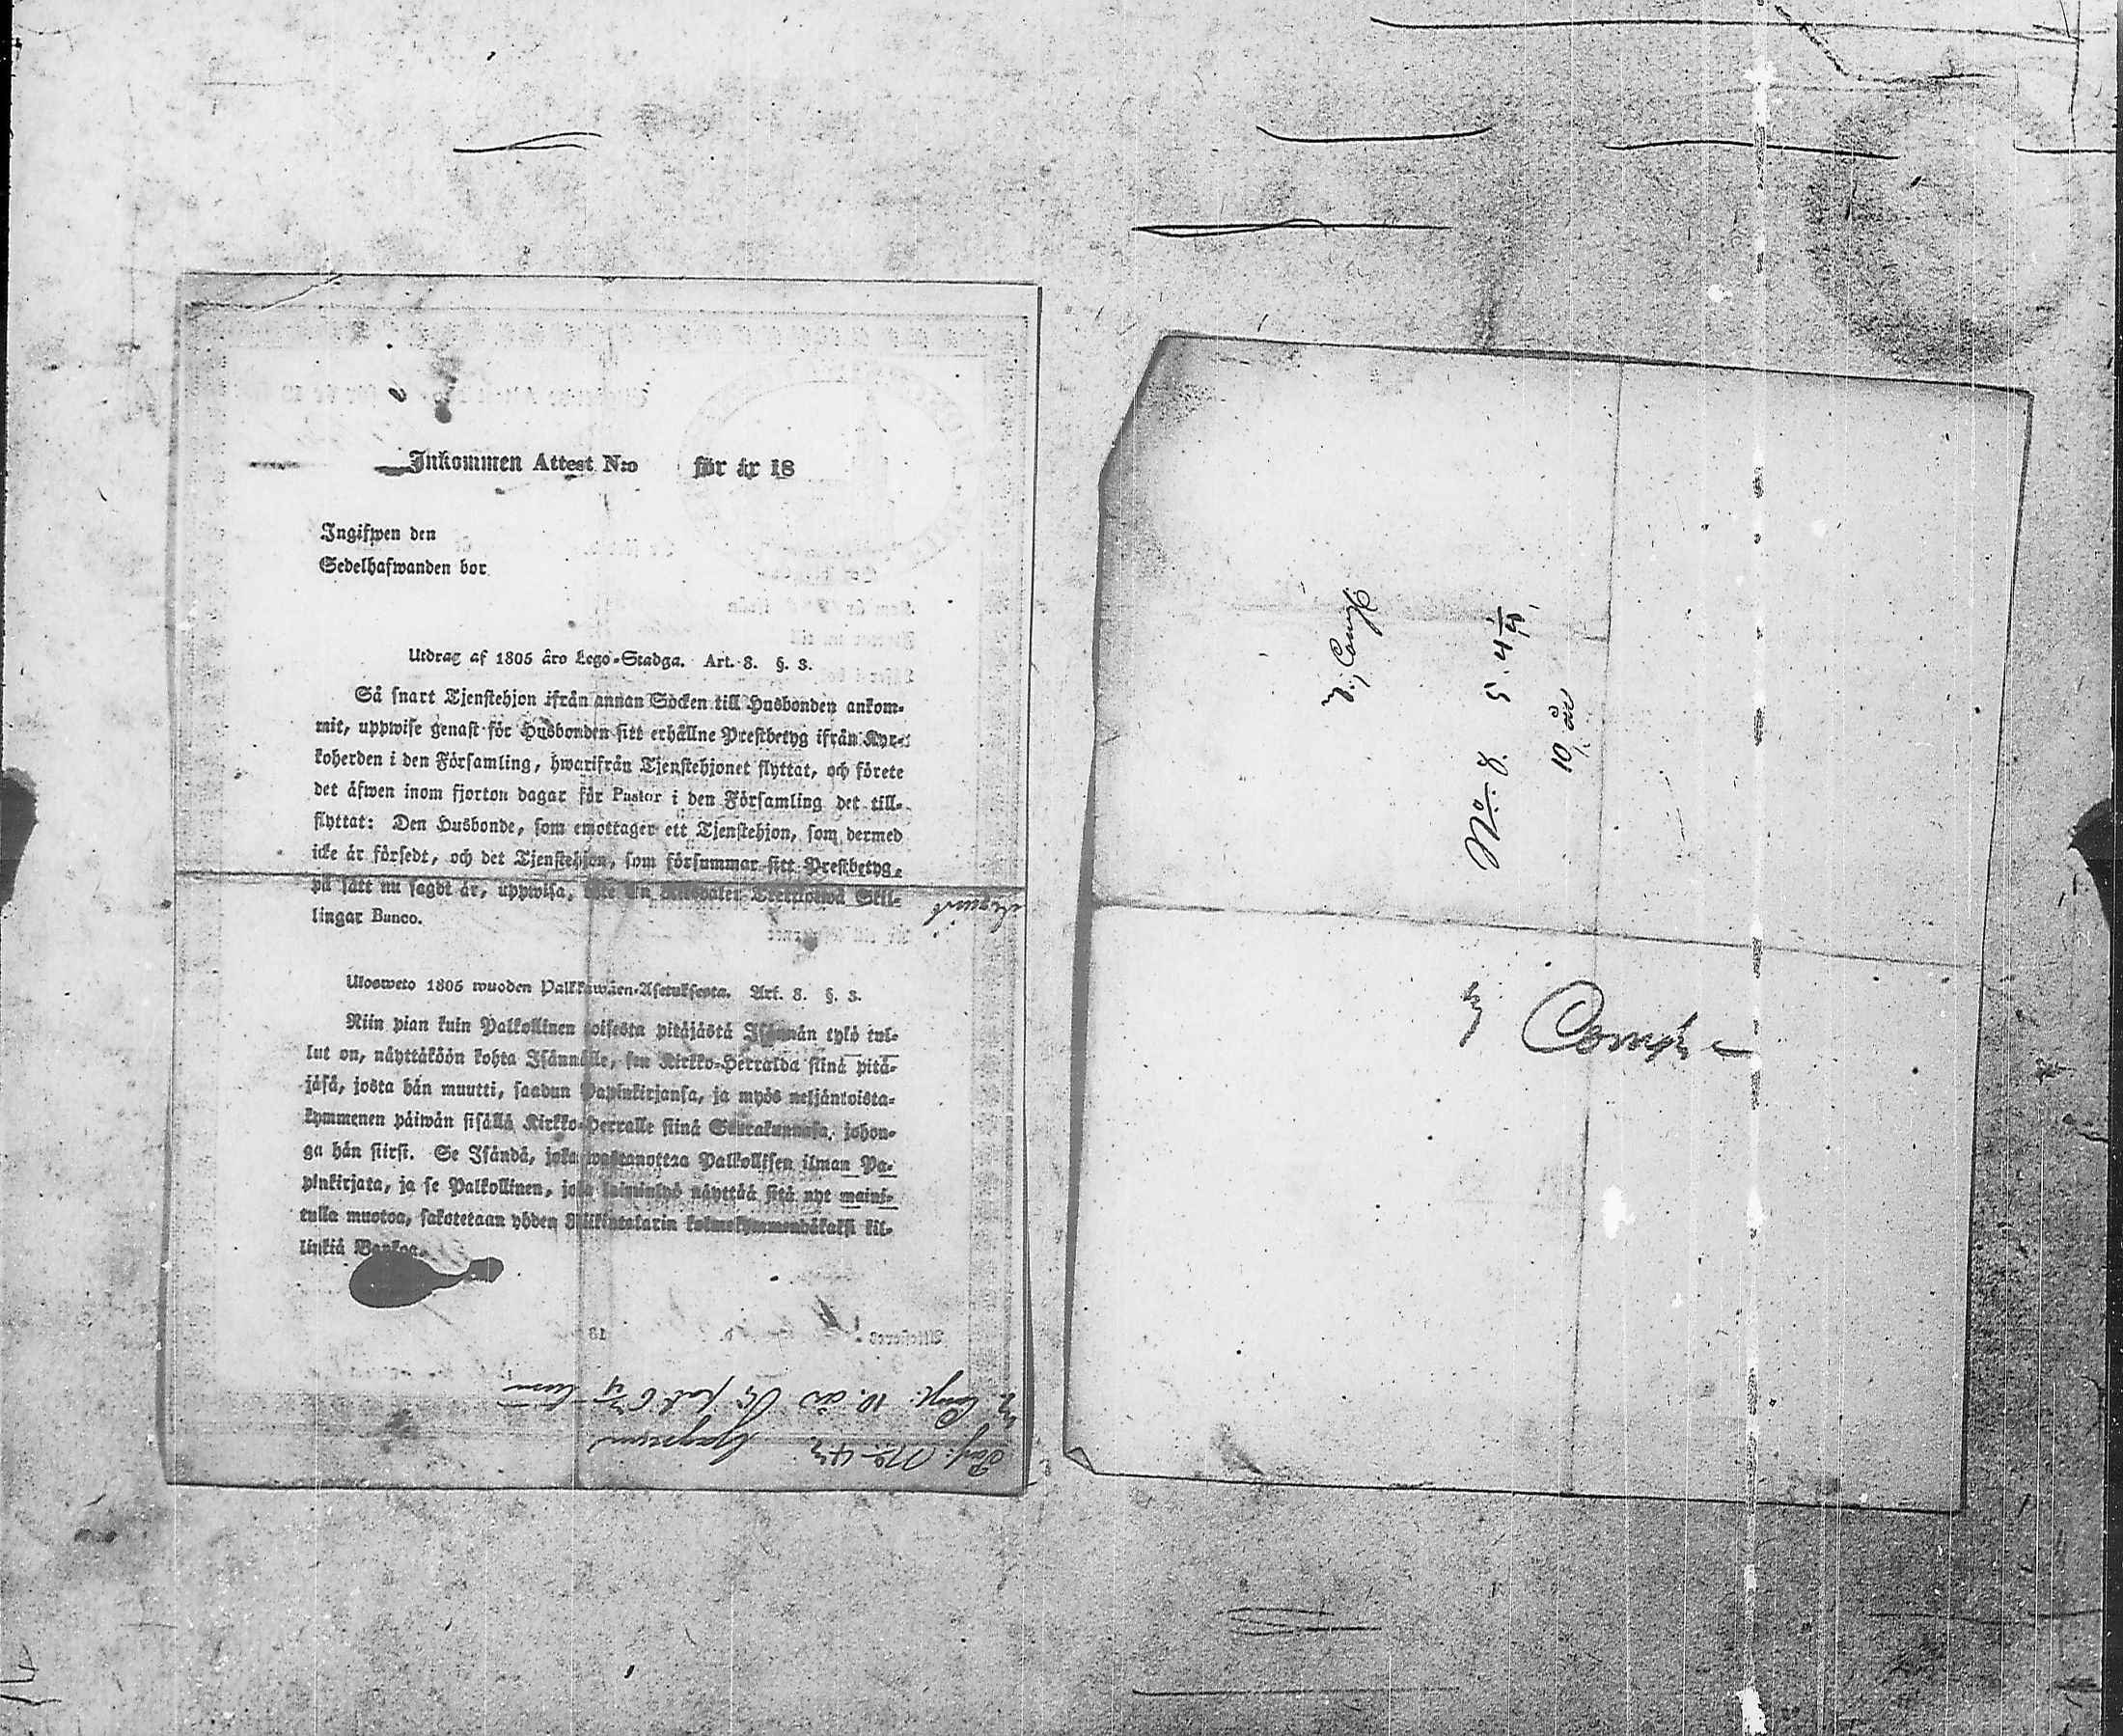 Inkommen Attest N:o för år 18
Ingifwen den
Sedelhafwanden bor
Utdrag af 1805 åro Lego-Stadga. Art. 8. §. 3.
Så snart Tjenstehjon ifrån annan Socken till Husbonden ankom-
mit, uppwise genast för Husbonden sitt erhållne Prestbetyg ifrån Kyr-
koherden i den Församling, hwarifrån Tjenstehjonet flyttat, och förete
det äfwen inom fjorton dagar för Pastor i den Församling det till-
flyttat: Den Husbonde, som emottager ett Tjenstehjon, som dermed
icke är försedt, och det Tjenstehjon, som försummar sitt Prestbetyg,
på sätt nu sagdt är, uppwisa, En Riksdaler Trettiotwå Skil-
lingar Banco.
Ulosweto 1805 wuoden Palkkawäen-Asetuksesta. Art. 8. §. 3.
Niin pian kuin Palkollinen toisesta pitäjästä Isännän tykö tul-
lut on, näyttäköön kohta Isännälle, sen Kirkko-Herralda siinä pitä-
jäsä, josta hän muutti, saadun Papinkirjansa, ja myös neljäntoista-
kymmenen päiwän sisällä Kirkko-Herralle siinä Seurakunnasa, johon-
ga hän siirsi. Se Isändä, joka wastanottaa Palkollisen ilman Pa-
pinkirjata, ja se Palkollinen, joka laiminlyö näyttää sitä nyt maini-
tulla muotoa, sakotetaan yhden Riikintalarin kolmekymmendäkaksi kil-
linkiä Bankoa.
No. 8. 5. 4
10 år